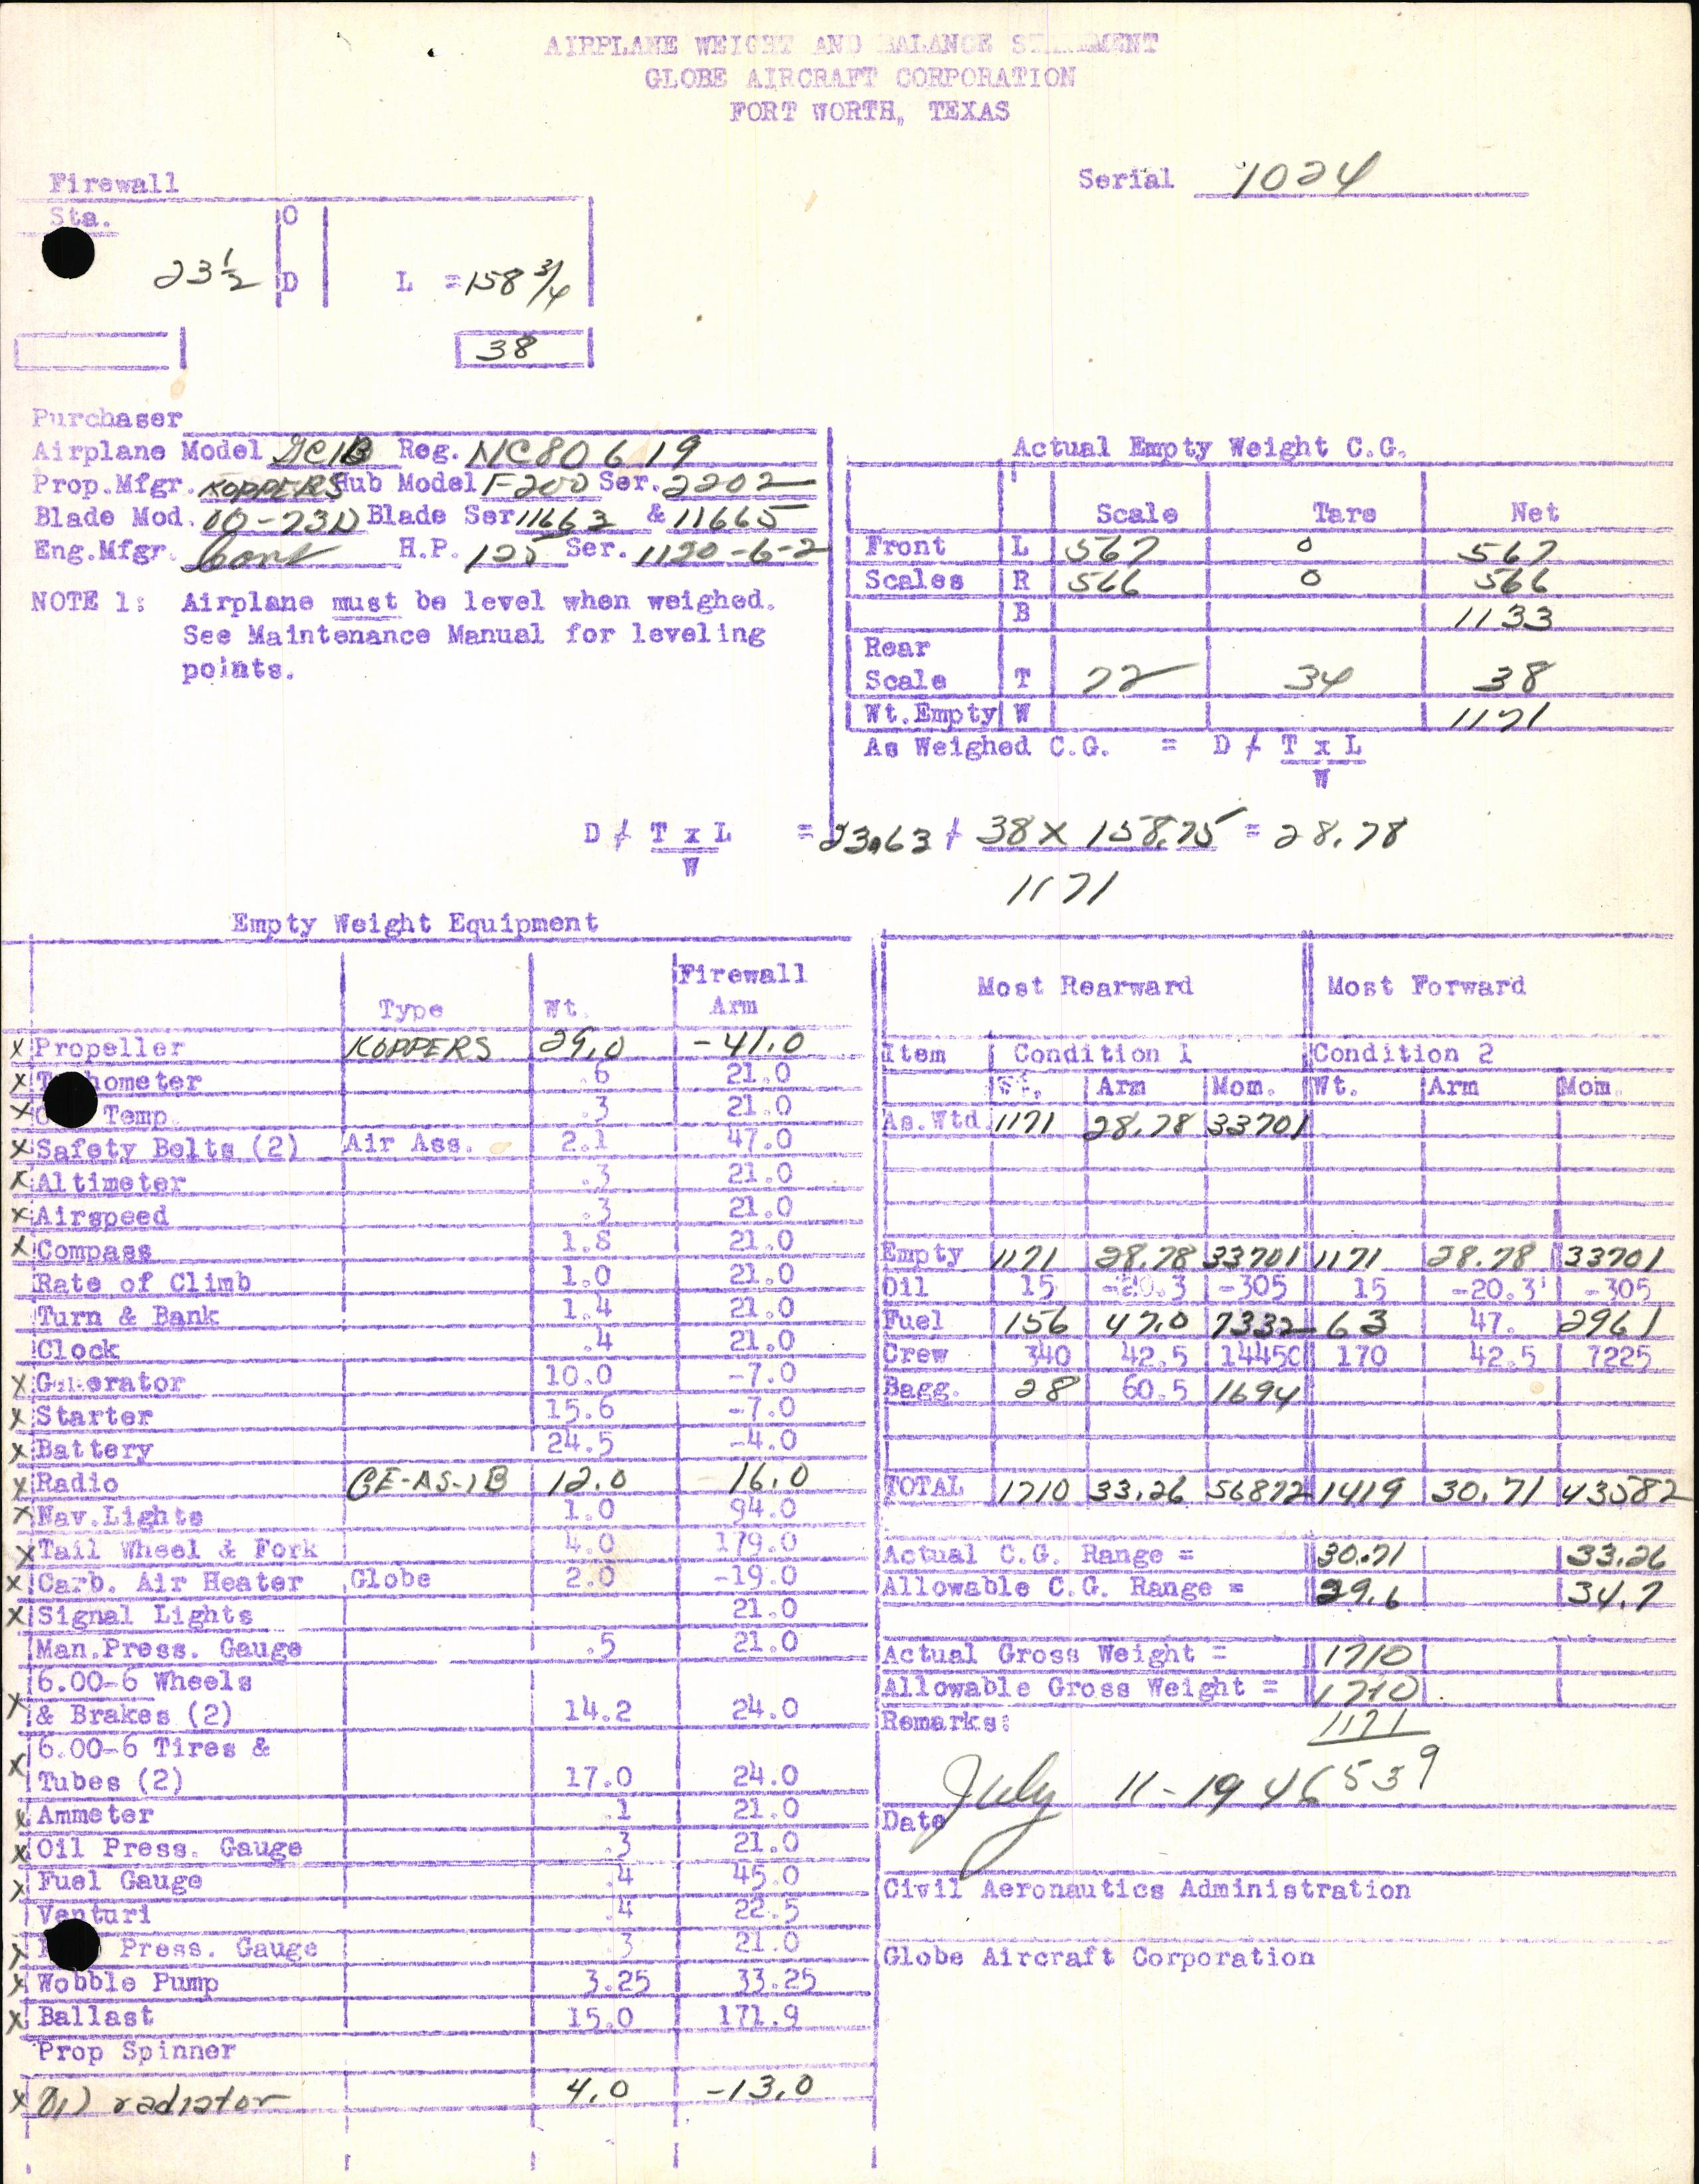 AIRPLANE WEIGHT AND BALANCE STATEMENT
GLOBE AIRCRAFT CORPORATION
FORT WORTH, TEXAS
Serial 1024
Firewall
Sta. O
23 1/2 D L = 158 3/4
38
Purchaser
Airplane Model GC1B Reg. NC80619
Prop.Mfgr. KOPPERS Hub Model F200 Ser. 2202
Blade Mod. 00-73D Blade Ser 11663 & 11665
Eng.Mfgr. Cont H.P. 125 Ser. 1120-6-2
NOTE 1: Airplane must be level when weighed.
See Maintenance Manual for leveling
points.
Actual Empty Weight C.G.
Scale Tare Net
Front L 567 0 567
Scales R 566 0 566
B 1133
Rear
Scale T 72 34 38
Wt.Empty W 1171
As Weighed C.G. = D ≠ T x L
W
D ≠ T x L = 23.63 + 38 X 158.75 = 28.78
W 1171
Empty Weight Equipment
Type Wt. Firewall Arm
x Propeller KOPPERS 29.0 -41.0
x T hometer .6 21.0
x Temp. .3 21.0
x Safety Belts (2) Air Ass. 2.1 47.0
x Altimeter .3 21.0
x Airspeed .3 21.0
x Compass 1.8 21.0
Rate of Climb 1.0 21.0
Turn & Bank 1.4 21.0
Clock .4 21.0
x Generator 10.0 -7.0
x Starter 15.6 -7.0
x Battery 24.5 -4.0
x Radio GE-AS-1B 12.0 16.0
x Nav.Lights 1.0 94.0
x Tail Wheel & Fork 4.0 179.0
x Carb. Air Heater Globe 2.0 -19.0
x Signal Lights 21.0
Man.Press. Gauge .5 21.0
6.00-6 Wheels
x & Brakes (2) 14.2 24.0
x 6.00-6 Tires &
Tubes (2) 17.0 24.0
x Ammeter .1 21.0
x Oil Press. Gauge .3 21.0
x Fuel Gauge .4 45.0
Venturi .4 22.5
x Press. Gauge .3 21.0
x Wobble Pump 3.25 33.25
x Ballast 15.0 171.9
Prop Spinner
x Oil radiator 4.0 -13.0
Most Rearward Most Forward
Item Condition 1 Condition 2
Wt. Arm Mom. Wt. Arm Mom.
As.Wtd. 1171 28.78 33701
Empty 1171 28.78 33701 1171 28.78 33701
Oil 15 -20.3 -305 15 -20.3 -305
Fuel 156 47.0 7332 63 47. 2961
Crew 340 42.5 14450 170 42.5 7225
Bagg. 28 60.5 1694
TOTAL 1710 33.26 56872 1419 30.71 43582
Actual C.G. Range = 30.71 33.26
Allowable C.G. Range = 29.6 34.7
Actual Gross Weight = 1710
Allowable Gross Weight = 1710
Remarks: 1171
539
July 11-1946
Date
Civil Aeronautics Administration
Globe Aircraft Corporation